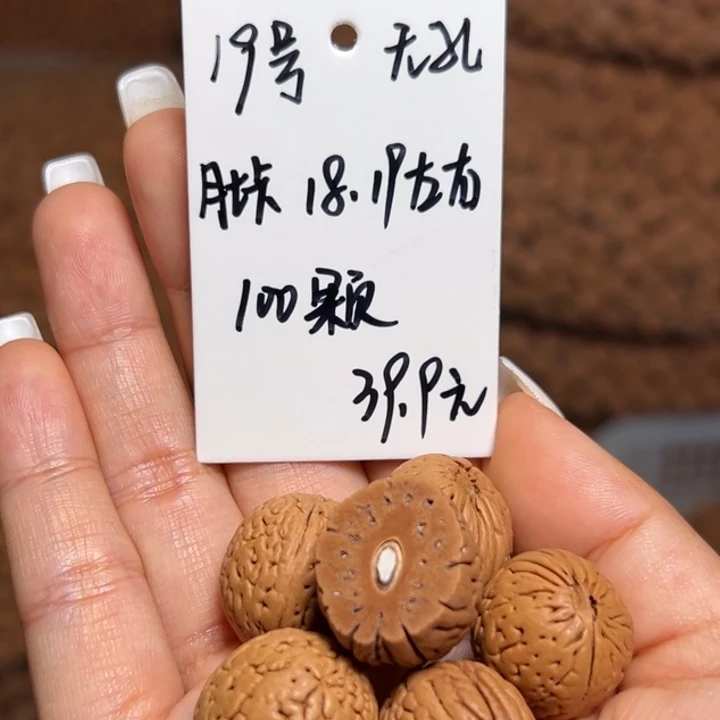 19号 无孔
肚长 18.19左右
100颗
39.9元